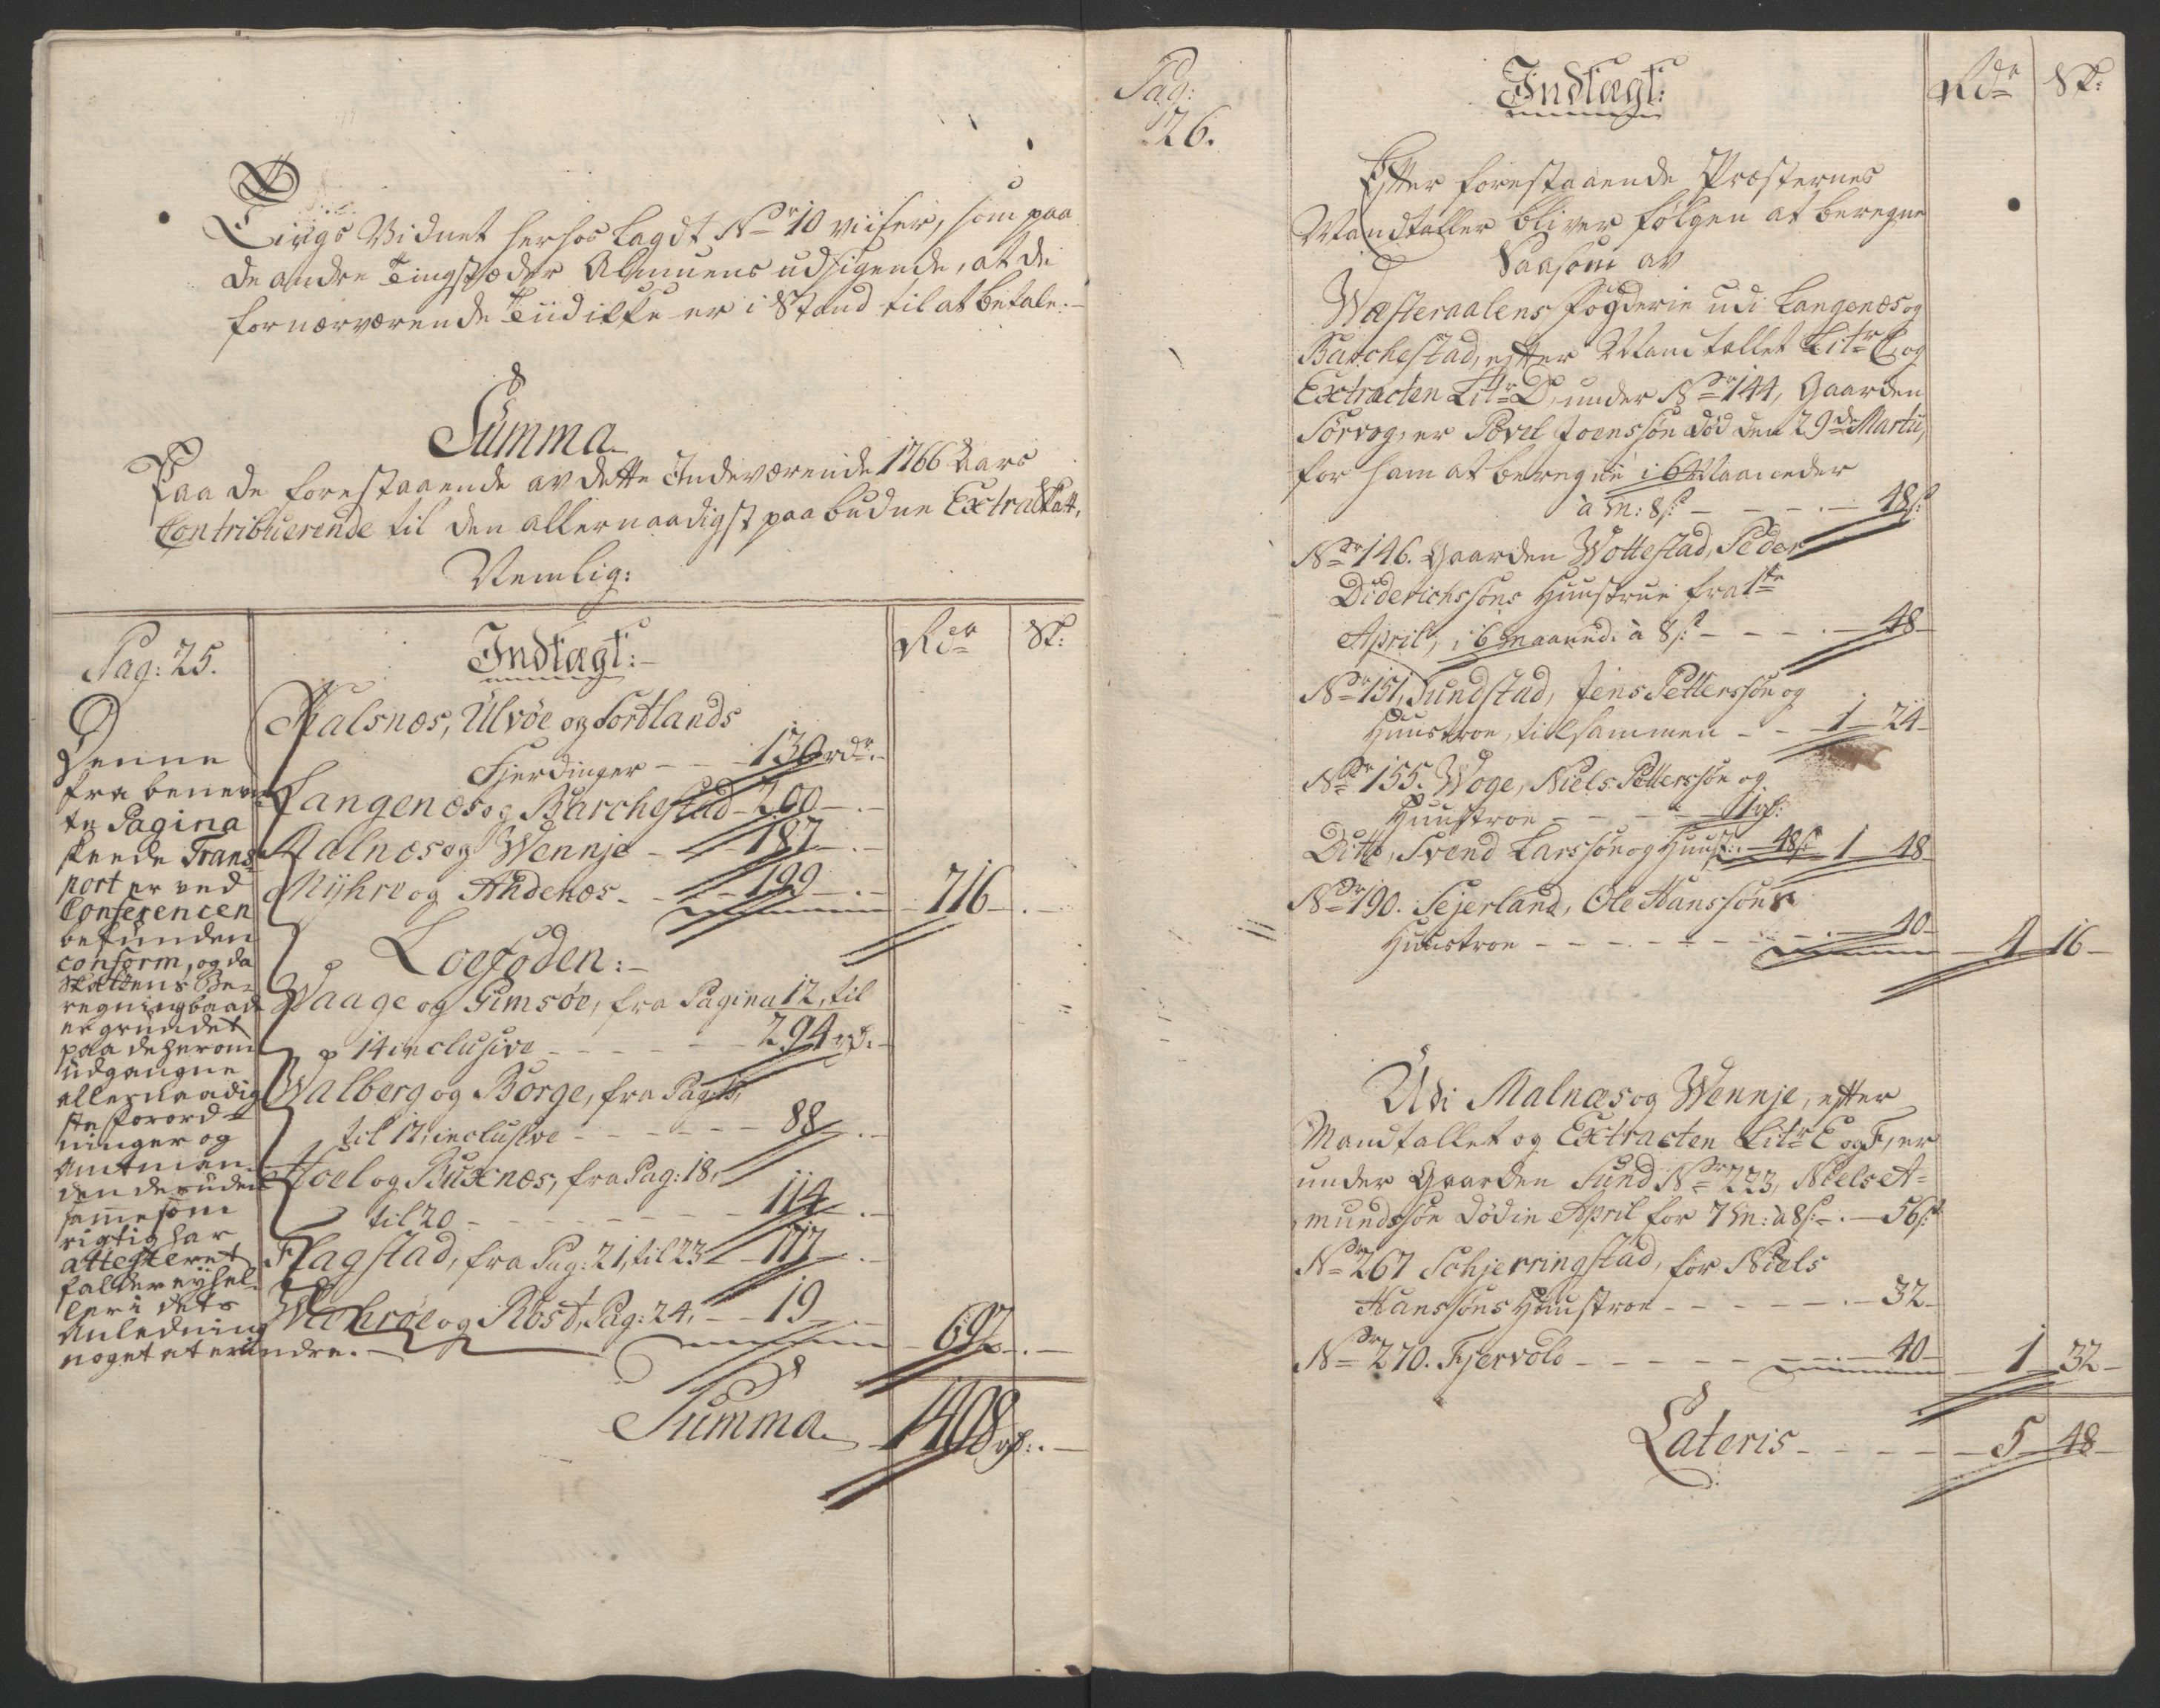 Tings Vidnet herhos Lagdt No 10 viiser, som paa
de andre Tingstæder Almuens udsigende, at de
for nærværende Tiid ikke er i Stand til at betale.
Summa
Paa de forestaaende av dette Indeværende 1766 Aars
Contribuerende til den allernaadigst paabudne Extra Skatt,
Nemlig:
Pag: 25.
Indtægt:
Rdr
Sk:
Denne
fra benevn-
te Pagina
skeede Trans-
port er ved
Conferencen
befunden
conform, og da
Skattens Be-
regning baade
er grundet
paa de herom
udgangne
allernaadig-
ste Forord-
ninger og
Amtman-
den desuden
samme som
rigtig har
attesteret
falder ey hel-
ler i dets
Anledning
noget at erindre.
Kalsnæs, Ulvøe og Sortlands
Fjerdinger - - - 130 rdr. -
Langenæs og Barchestad - 200 - . -
Malnæs og Wennje - - 187 - . -
Myhre og Andenæs - - - 199 - . - 716 - . -
Loefoden:
Waage og Gimsøe, fra Pagina 12, til
p 14 inclusive - - - - - 294 rd. -
Walberg og Borge, fra Pag: 15,
til 17, inclusive - - - - - - 88 - . -
Hoel og Buxnæs, fra Pag: 18,
til 20 - - - - - - - 114 - . -
Flagstad, fra Pag: 21, til 23 - 177 - . -
Wehrøe og Röst, Pag: 24, - - 19 - . - 692 - . -
Summa 1408 rd: . -
Pag:
26.
Indtægt:
Rdr
Sk:
Efter forestaaende Præsternes
Mandtaller bliver følgen at beregne
Saasom av
Westeraalens Fogderie udi Langenæs og
Barchestad, efter Mandtallet Litr C, og
Extracten Litr D, under No 144, Gaarden
Sørvog, er Povel Joenssøn død den 29de Martii,
for ham at beregne i 6 Maaneder
à m: 8 s: - - - . - 48 s:
No 146. Gaarden Wottestad, Peder
Diderichssøns Huustrue fra 1ste
April, i 6 maaned. à 8 s: - - - . - 48 -
No 151, Sundstad, Jens Pettersøn og
Huustroe, tilsammen - - - 1 - 24 -
No 155. Woge, Niels Pettersøn og
Huustroe - - - - 1 rd:
Ditto, Svend Larssøn og Huust: . - 48 s: 1 - 48 -
No 190. Sejerland, Ole Hanssøns
Huustroe - - - - - - - . - 40 - 4 - 16 -
Udi Malnæs og Wennje, efter
Mandtallet og Extracten Litr E og F, er
under Gaarden Sund No 223, Niels A-
mundssøn død in April for 7 m: à 8 s: - . - 56 s:
No 267 Schjerringstad, for Niels
Hanssøns Huustroe - - - - - . - 32 -
No 270. Fjervold - - - - - - - . - 40 - 1 - 32 -
Lateris - - - - - 5 - 48 -